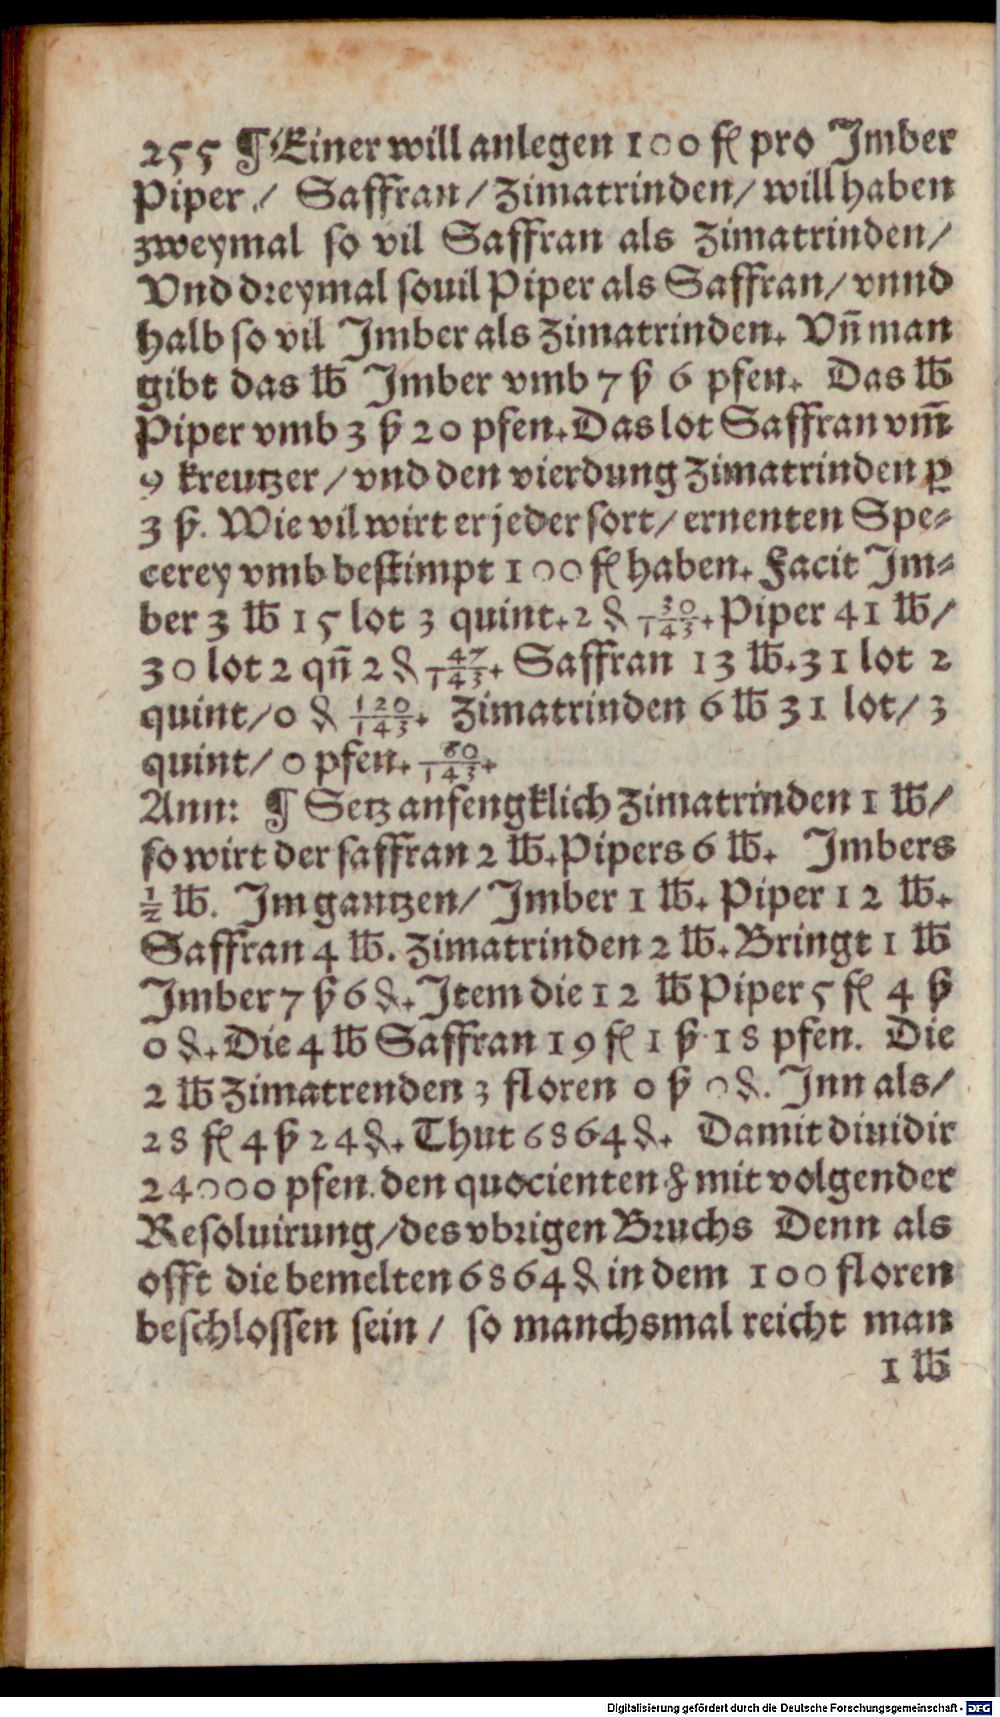 255 ¶ Einer will anlegen 100 fl pro Jmber
Piper / Saffran / Zimatrinden / will haben
zweymal so vil Saffran als Zimatrinden /
Vnd dreymal souil Piper als Saffran / vnnd
halb so vil Jmber als Zimatrinden. Vn̄ man
gibt das ℔ Jmber vmb 7 ß 6 pfen. Das ℔
Piper vmb 3 ß 20 pfen. Das lot Saffran vm̄
9 kreutzer / vnd den vierdung Zimatrinden ꝑ
3 ß. Wie vil wirt er jeder sort / ernenten Spe⸗
cerey vmb bestimpt 100 fl haben. Facit Jm⸗
ber 3 ℔ 15 lot 3 quint. 2 ₰ 30/143. Piper 41 ℔ /
30 lot 2 qn̄ 2 ₰ 47/143. Saffran 13 ℔. 31 lot 2
quint / 0 ₰ 120/143. Zimatrinden 6 ℔ 31 lot / 3
quint / 0 pfen. 60/143.
Ann: ¶ Setz anfengklich Zimatrinden 1 ℔ /
so wirt der saffran 2 ℔. Pipers 6 ℔. Jmbers
1/2 ℔. Jm gantzen / Jmber 1 ℔. Piper 12 ℔.
Saffran 4 ℔. Zimatrinden 2 ℔. Bringt 1 ℔
Jmber 7 ß 6 ₰. Jtem die 12 ℔ Piper 5 fl 4 ß
0 ₰. Die 4 ℔ Saffran 19 fl 1 ß 18 pfen. Die
2 ℔ Zimatrenden 3 floren 0 ß 0 ₰. Jnn als /
28 fl 4 ß 24 ₰. Thut 6864 ₰. Damit diuidir
24000 pfen. den quocienten mit volgender
Resoluirung / des vbrigen Bruchs Denn als
offt die bemelten 6864 ₰ in dem 100 floren
beschlossen sein / so manchsmal reicht man
1 ℔
Digitalisierung gefördert durch die Deutsche Forschungsgemeinschaft - DFG